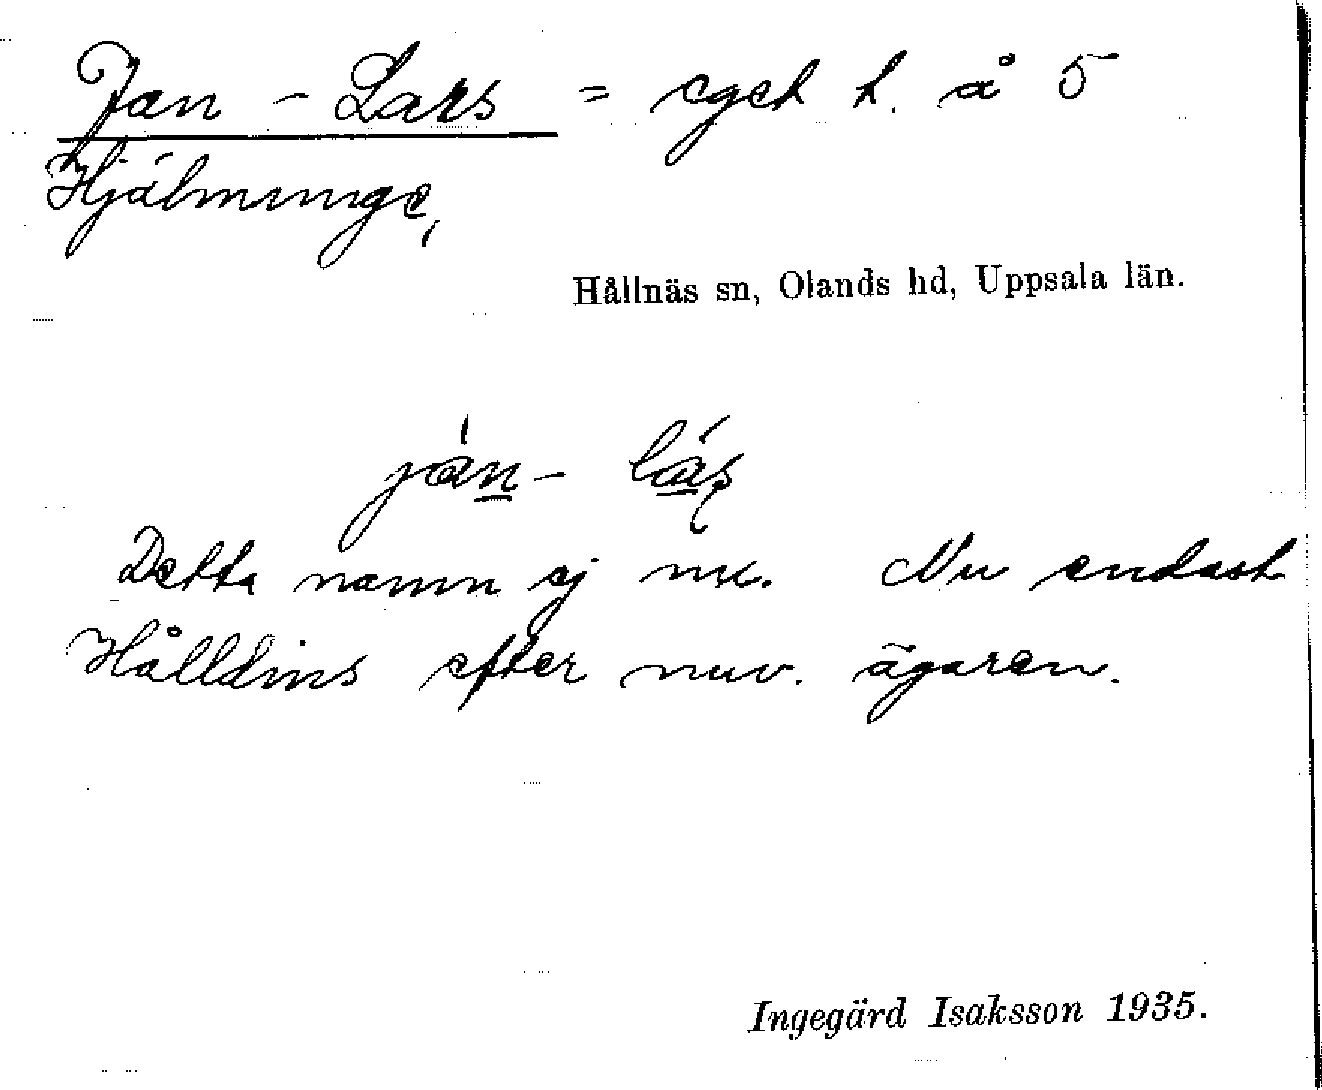 Jan - Lars = eget h. å 5
Hjälmunge,
Hållnäs sn, Olands hd, Uppsala län.
jàn - láş
Detta namn ej nu. Nu endast
Hålldins efter nuv. ägaren.
Ingegärd Isaksson 1935.